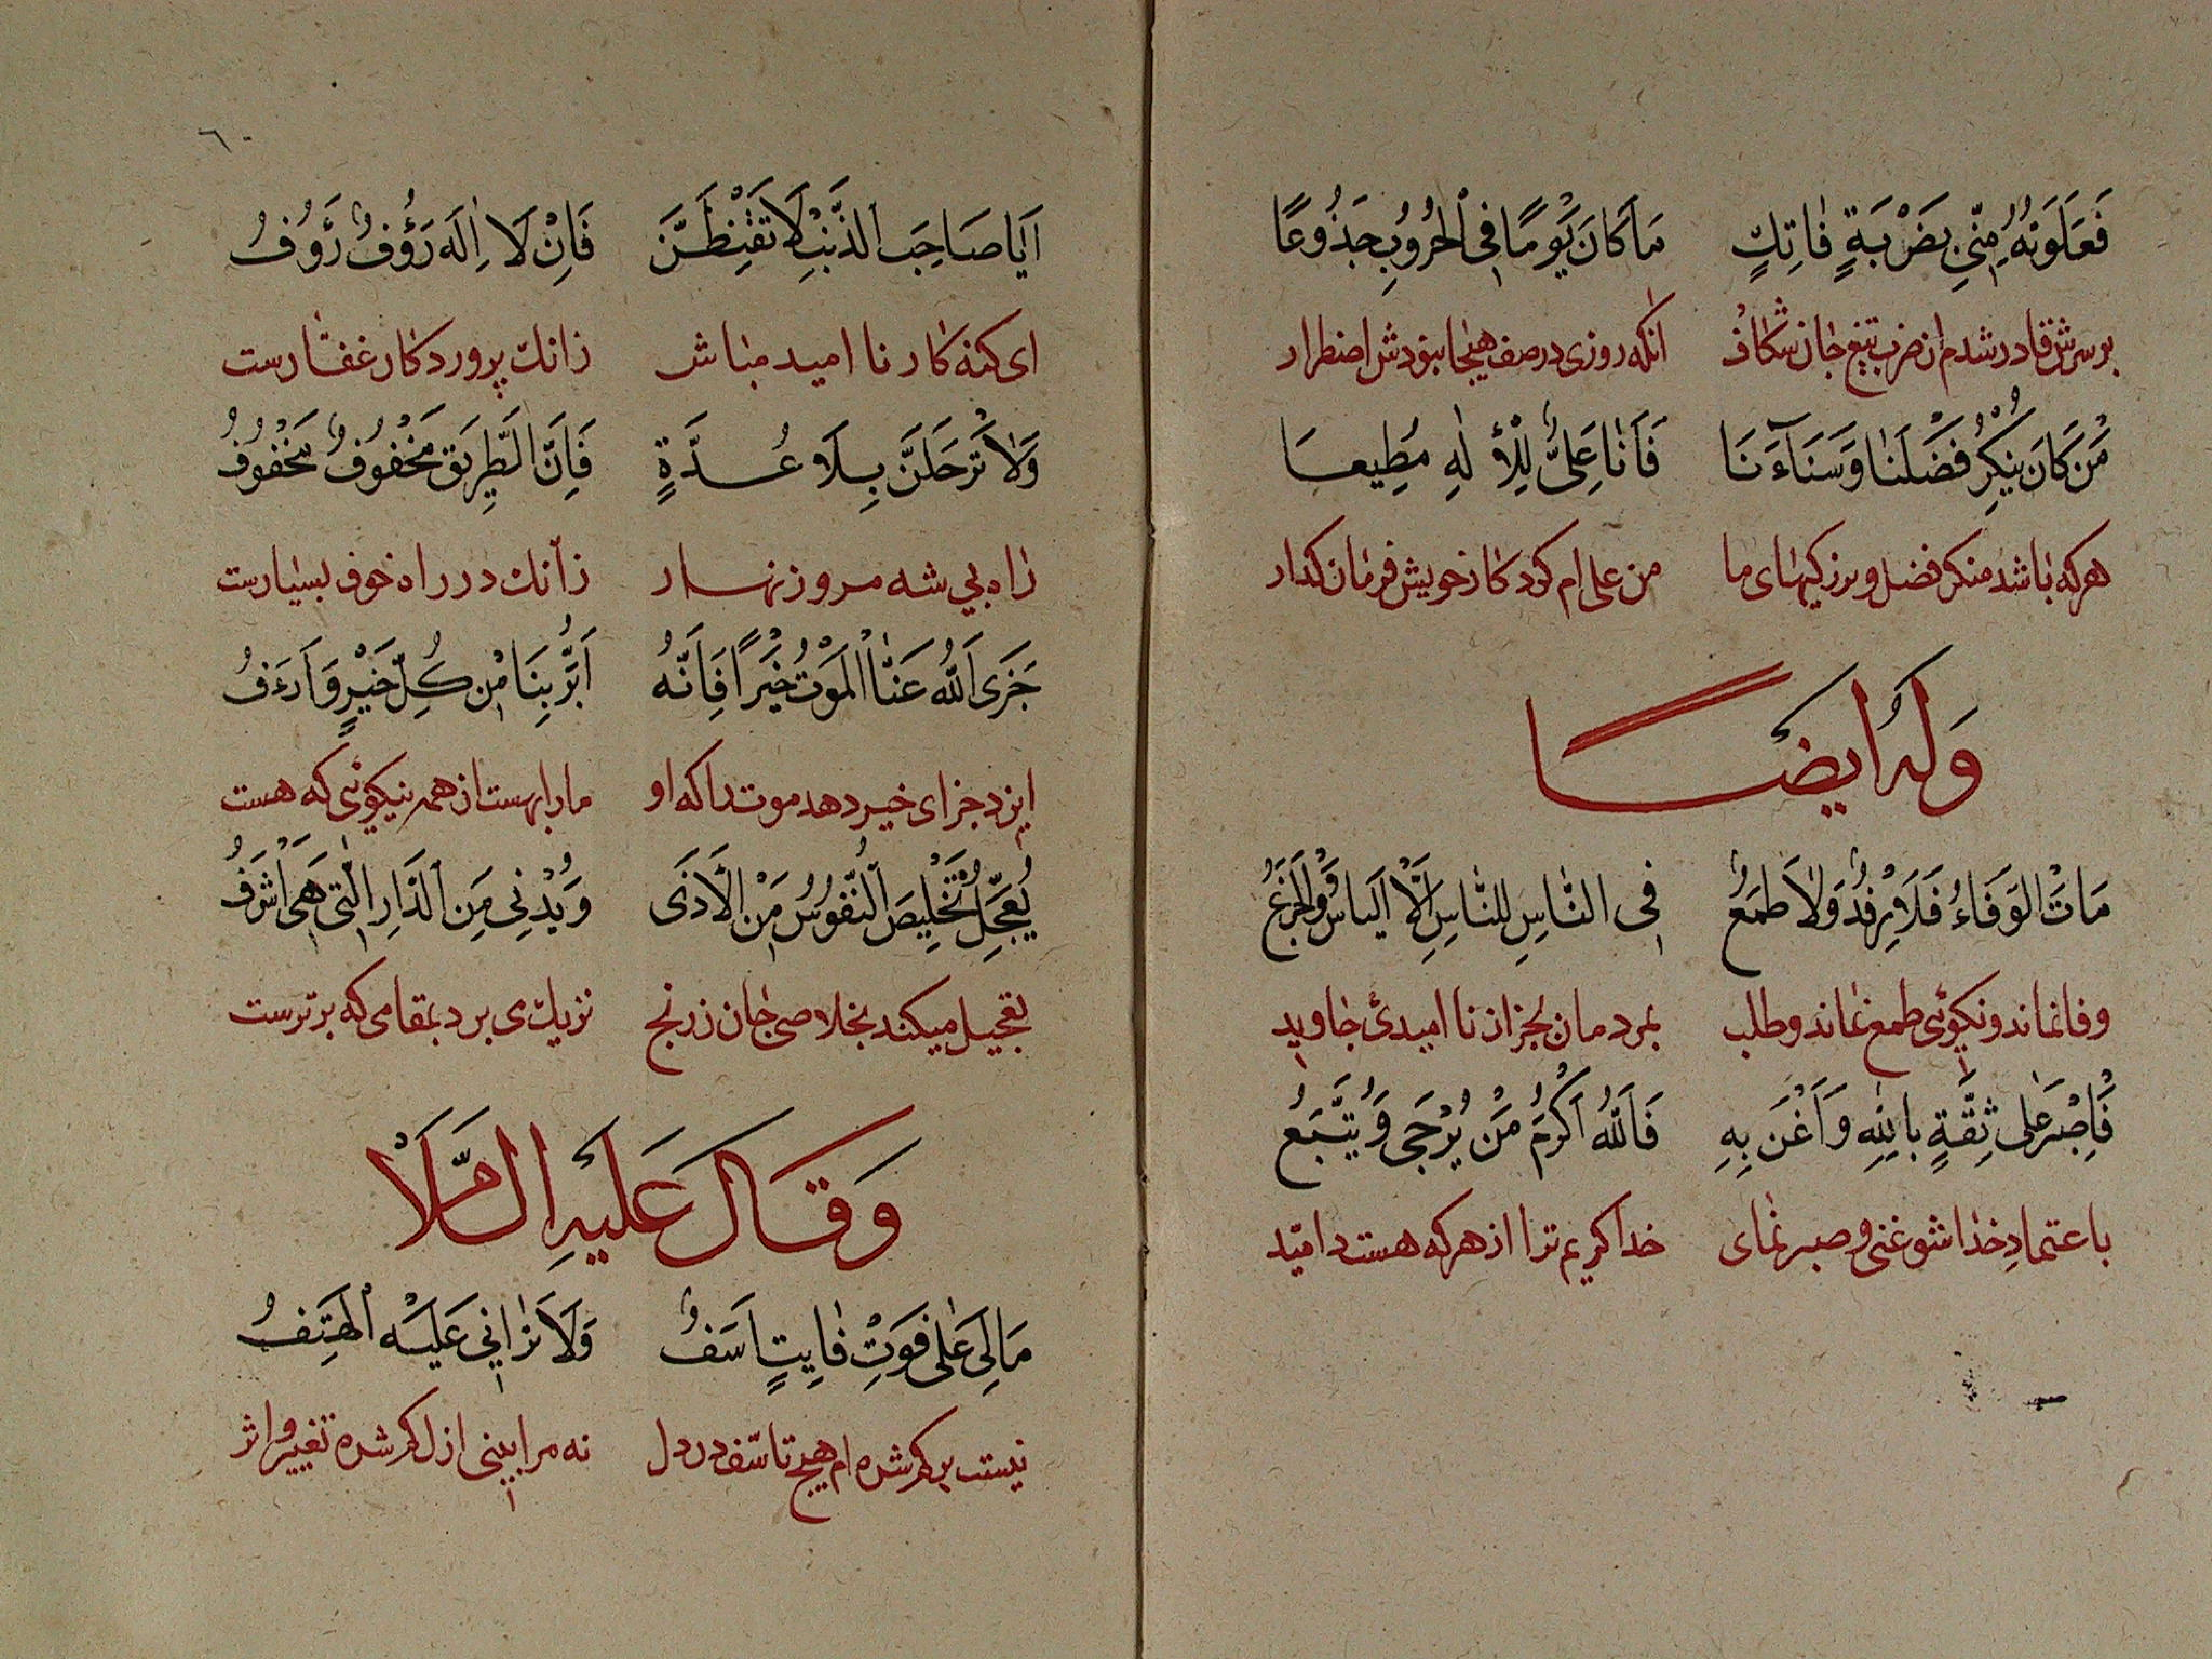 فَعَلَوتُهُ مِنّي بِضَرْبَةٍ فٰاتِكٍ مَا كَانَ يَوْمًا فِي الْحُرُوبِ جَذُوعًا
برسرش قادر شدم از ضرب تیغ جان شکاف انکه روزی در صف هیجا نبودش اضطرار
مَنْ كَانَ يُنْكِرُ فَضْلَنَا وَسَنَاءَنَا فَاَنَا عَلِيٌّ لِلْاِلٰهِ مُطِيعا
هرکه باشد منکر فضل و بزرکیهای ما من علی ام کردکار خویش فرمان کذار
وَلَهُ ايضًا
مَاتَ الوَفَاءُ فَلَا رِفْدٌ وَلَا طَمَعٌ فى النَّاسِ لِلنَّاسِ اِلَّا الْيَاسُ وَالْجَزَعُ
وفا نماند و نکوئی طمع نماند و طلب بمردمان بجز از نا امیدئ جاوید
فَاِصْبَر عَلى ثِقَّةٍ بِاللهِ وَاَغْنَ بِهِ فَاَللهُ اَكْرَمُ مَنْ يُرْجَى وَيُتَّبَعُ
باعتماد خدا شو غنی و صبر نمای خدا کریم ترا از هرکه هست دامّید
٦٠
اَيَا صَاحِبَ الذَّنْبِ لَا تَقْنِطَنَّ فَاِنَّ الْاِلَهَ رَؤُفٌ رَؤُفُ
ای کنه کار نا امید مباش زانك پروردکار غفّارست
وَلَا تَرْحَلَنَّ بِلَا عُدَّةٍ فَاِنَّ الطَّرِيقَ مَخُوفٌ مَخُوفُ
راه بی شه مرو زنهار زآنك در راه خوف بسیارست
جَزَى اَللهُ عَنَّا الْمَوْتُ خَيْرًا فَاِنَّهُ اَبَرُّ بِنَا مِنْ كُلِّ خَيْرٍ وَاَرْءَفُ
ایزد جزای خیر دهد موت را که او مارا بهست از همه نیکوئی که هست
يُعَجِّلُ تَخْلِيصَ النُّفُوسُ مِنَ الْاَذَى وَيُدْنِى مِنَ الدَّارِ الَّتِى هِىَ اَشْرَفُ
تعجیل میکند بخلاصی جان ز رنج نزدیك می برد بمقامی که برترست
وَقَالَ عَلَيْهِ السَّلَامْ
مَا لِىَ عَلٰى فَوْتِ فٰايِتٍ اَسَفٌ وَلَا تَرٰانِي عَلَيْهِ الْتَهِفُ
نیست بر کم شده ام هیچ تاسّف در دل نه مرا بینی ازل کم شده تغییر و اثر